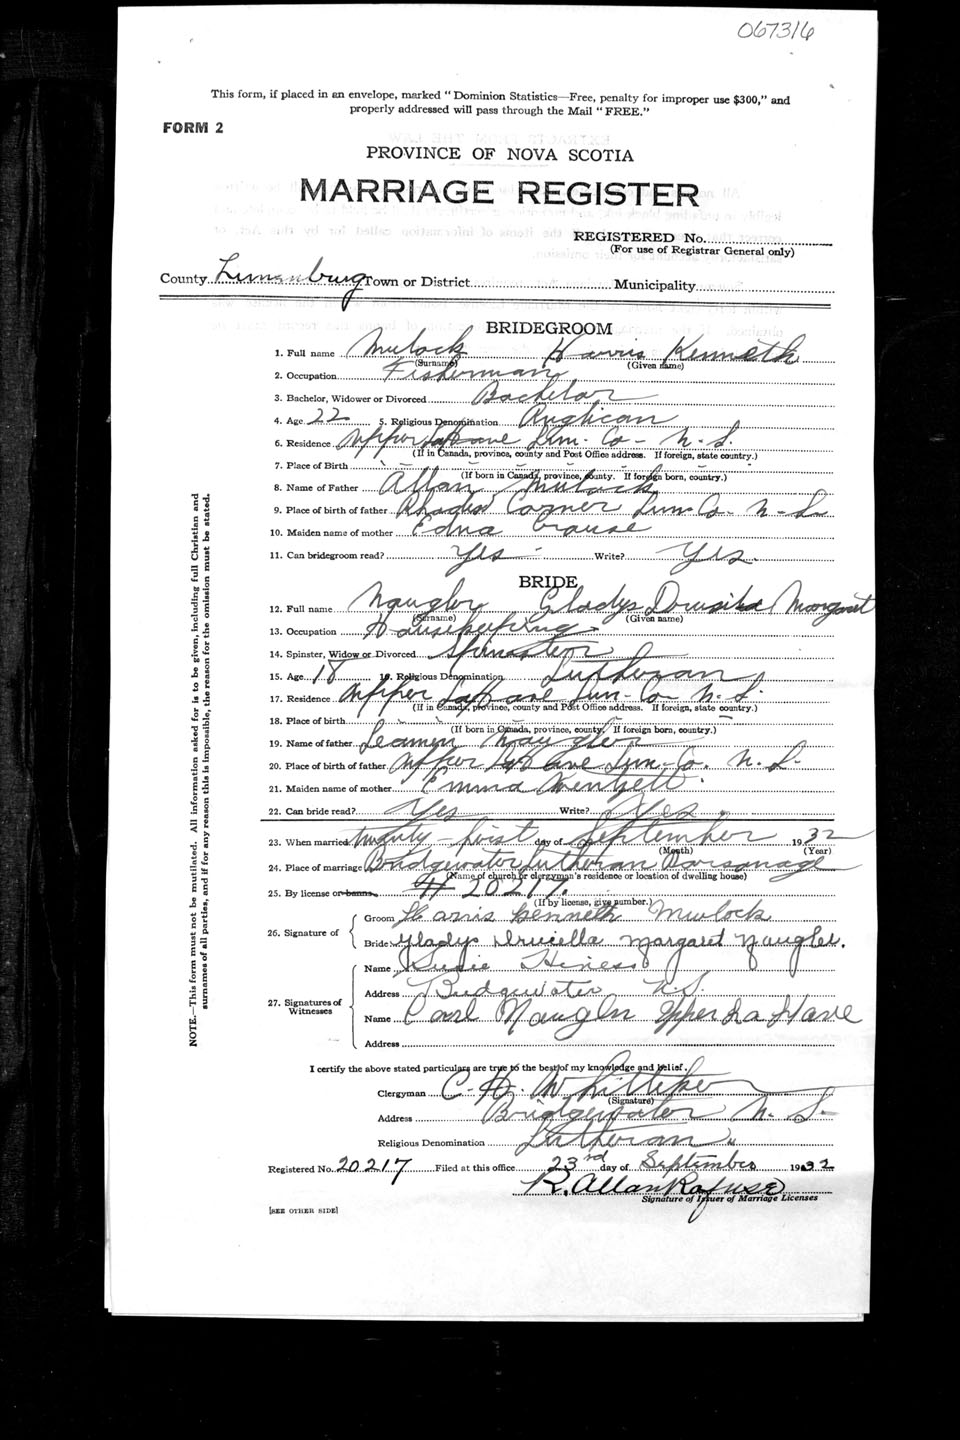 067316
This form, if placed in an envelope, marked “Dominion Statistics—Free, penalty for improper use $300,” and
properly addressed will pass through the Mail “FREE.”
FORM 2
PROVINCE OF NOVA SCOTIA
MARRIAGE REGISTER
REGISTERED No.
(For use of Registrar General only)
County Lunenburg Town or District Municipality
BRIDEGROOM
1. Full name Mulock Harris Kenneth
(Surname) (Given name)
2. Occupation Fisherman
3. Bachelor, Widower or Divorced Bachelor
4. Age 22 5. Religious Denomination Anglican
6. Residence Upper LaHave Lun. Co- N.S.
(If in Canada, province, county and Post Office address. If foreign, state country.)
7. Place of Birth " " " " "
(If born in Canada, province, county. If foreign born, country.)
8. Name of Father Allan Mulock
9. Place of birth of father Rhodes Corner Lun. Co- N-S-
10. Maiden name of mother Edna Crouse
11. Can bridegroom read? Yes - Write? Yes.
BRIDE
12. Full name Naugler Gladys Drusilla Margaret
(Surname) (Given name)
13. Occupation Housekeeping
14. Spinster, Widow or Divorced Spinster
15. Age 18 16. Religious Denomination Lutheran
17. Residence Upper LaHave Lun-Co N.S.
(If in Canada, province, county and Post Office address. If foreign, state country.)
18. Place of birth " " " "
(If born in Canada, province, county. If foreign born, country.)
19. Name of father Leamen Naugler
20. Place of birth of father Upper LaHave Lun-Co. N.S.
21. Maiden name of mother Emma Wentzell
22. Can bride read? Yes Write? Yes.
23. When married twenty-first day of September 1932
(Month) (Year)
24. Place of marriage Bridgewater Lutheran Parsonage
(Name of church or clergyman's residence or location of dwelling house)
25. By license or banns # 20217.
(If by license, give number.)
26. Signature of
Groom Harris Kenneth Mulock
Bride Gladys Drucella Margaret Naugler.
27. Signatures of Witnesses
Name Susie
Address Bridgewater N.S.
Name Carl Naugler Upper La Have
Address
I certify the above stated particulars are true to the best of my knowledge and belief.
Clergyman C. H. Whitteker
(Signature)
Address Bridgewater N. S-
Religious Denomination Lutheran
Registered No. 20217 Filed at this office 23rd day of September 1932
R. Allan Rafuse
Signature of Issuer of Marriage Licenses
[SEE OTHER SIDE]
NOTE.—This form must not be mutilated. All information asked for is to be given, including full Christian and
surnames of all parties, and if for any reason this is impossible, the reason for the omission must be stated.